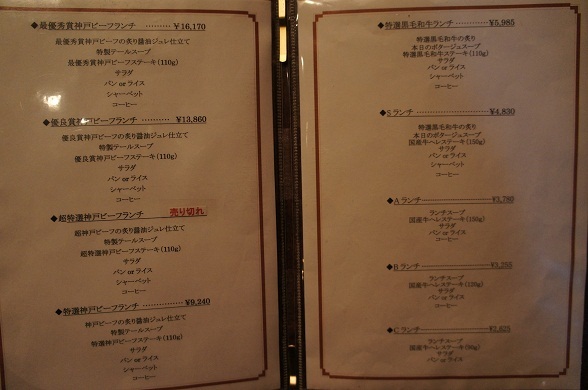 ◆最優秀賞神戸ビーフランチ ……… ¥16,170
最優秀賞神戸ビーフの炙り醤油ジュレ仕立て
特製テールスープ
最優秀賞神戸ビーフステーキ(110g)
サラダ
パン or ライス
シャーベット
コーヒー
◆優良賞神戸ビーフランチ ……… ¥13,860
優良賞神戸ビーフの炙り醤油ジュレ仕立て
特製テールスープ
優良賞神戸ビーフステーキ(110g)
サラダ
パン or ライス
シャーベット
コーヒー
◆超特選神戸ビーフランチ 売り切れ
超神戸ビーフの炙り醤油ジュレ仕立て
特製テールスープ
超特選神戸ビーフステーキ(110g)
サラダ
パン or ライス
シャーベット
コーヒー
◆特選神戸ビーフランチ ……… ¥9,240
神戸ビーフの炙り醤油ジュレ仕立て
特製テールスープ
特選神戸ビーフステーキ(110g)
サラダ
パン or ライス
シャーベット
コーヒー
◆特選黒毛和牛ランチ ……… ¥5,985
特選黒毛和牛の炙り
本日のポタージュスープ
特選黒毛和牛ステーキ(110g)
サラダ
パン or ライス
シャーベット
コーヒー
◆Sランチ ……… ¥4,830
特選黒毛和牛の炙り
本日のポタージュスープ
国産牛ヘレステーキ(150g)
サラダ
パン or ライス
シャーベット
コーヒー
◆Aランチ ……… ¥3,780
ランチスープ
国産牛ヘレステーキ(150g)
サラダ
パン or ライス
コーヒー
◆Bランチ ……… ¥3,255
ランチスープ
国産牛ヘレステーキ(120g)
サラダ
パン or ライス
コーヒー
◆Cランチ ……… ¥2,625
ランチスープ
国産牛ヘレステーキ(90g)
サラダ
パン or ライス